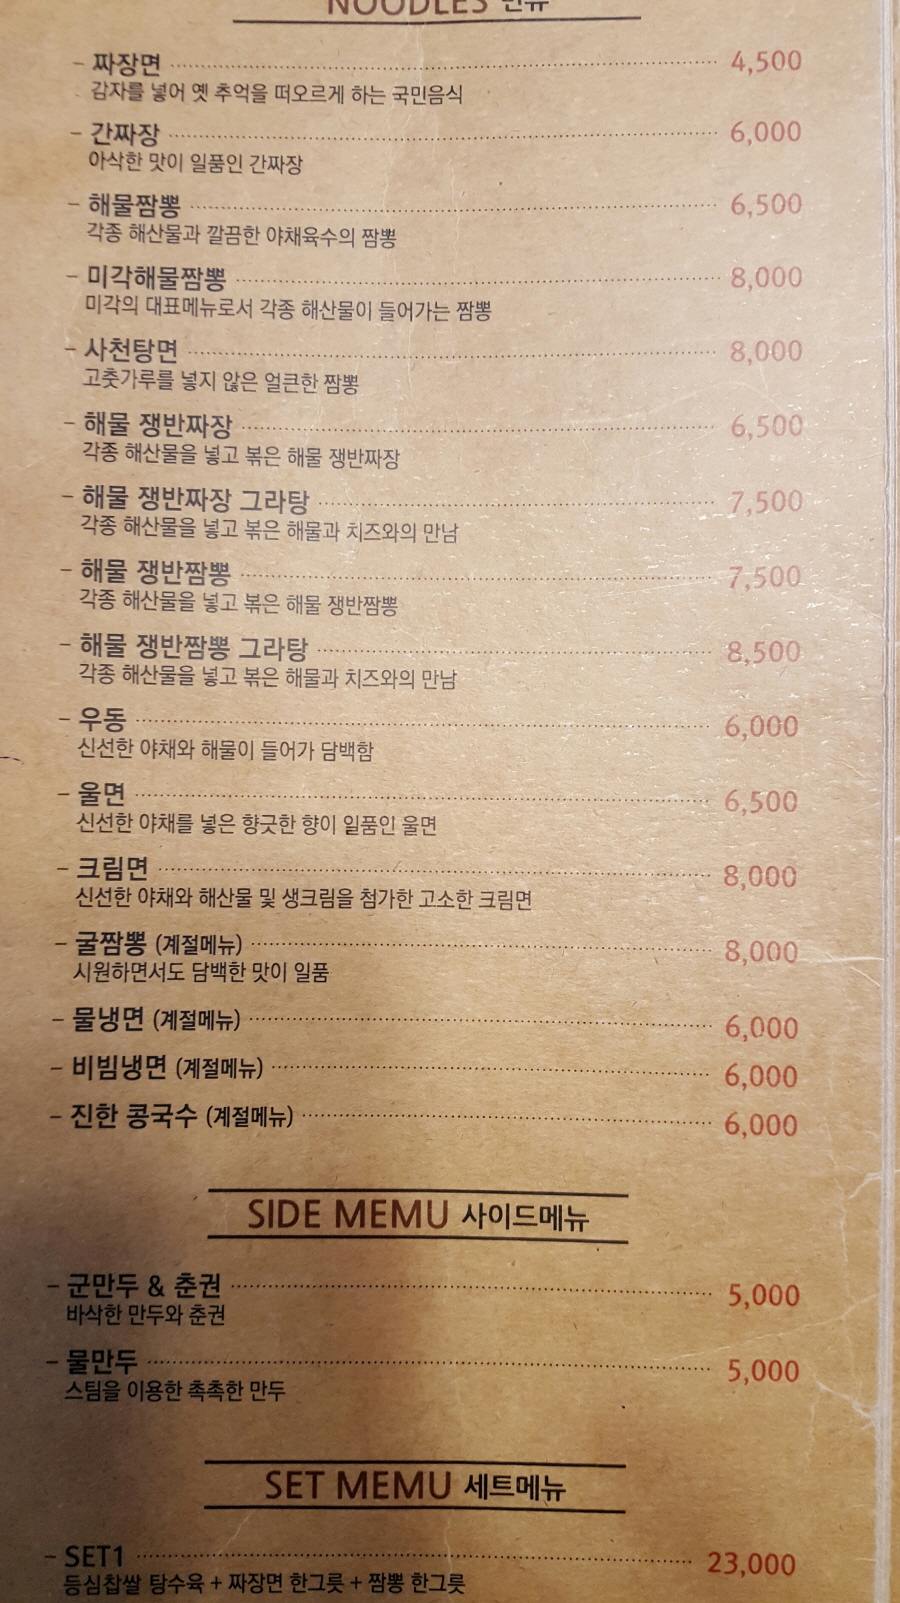 NOODLES 면류
– 짜장면 4,500
감자를 넣어 옛 추억을 떠오르게 하는 국민음식
– 간짜장 6,000
아삭한 맛이 일품인 간짜장
– 해물짬뽕 6,500
각종 해산물과 깔끔한 야채육수의 짬뽕
– 미각해물짬뽕 8,000
미각의 대표메뉴로서 각종 해산물이 들어가는 짬뽕
– 사천탕면 8,000
고춧가루를 넣지 않은 얼큰한 짬뽕
– 해물 쟁반짜장 6,500
각종 해산물을 넣고 볶은 해물 쟁반짜장
– 해물 쟁반짜장 그라탕 7,500
각종 해산물을 넣고 볶은 해물과 치즈와의 만남
– 해물 쟁반짬뽕 7,500
각종 해산물을 넣고 볶은 해물 쟁반짬뽕
– 해물 쟁반짬뽕 그라탕 8,500
각종 해산물을 넣고 볶은 해물과 치즈와의 만남
– 우동 6,000
신선한 야채와 해물이 들어가 담백함
– 울면 6,500
신선한 야채를 넣은 향긋한 향이 일품인 울면
– 크림면 8,000
신선한 야채와 해산물 및 생크림을 첨가한 고소한 크림면
– 굴짬뽕 (계절메뉴) 8,000
시원하면서도 담백한 맛이 일품
– 물냉면 (계절메뉴) 6,000
– 비빔냉면 (계절메뉴) 6,000
– 진한 콩국수 (계절메뉴) 6,000
SIDE MEMU 사이드메뉴
– 군만두 & 춘권 5,000
바삭한 만두와 춘권
– 물만두 5,000
스팀을 이용한 촉촉한 만두
SET MEMU 세트메뉴
– SET1 23,000
등심찹쌀 탕수육 + 짜장면 한그릇 + 짬뽕 한그릇